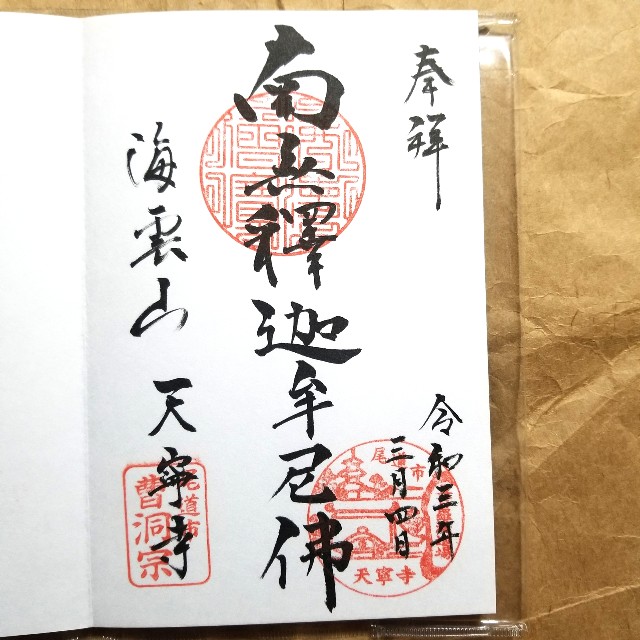 奉拝
令和三年
三月四日
南無釋迦牟尼佛
海雲山 天寧寺
尾道市
天寧寺
尾道市
曹洞宗